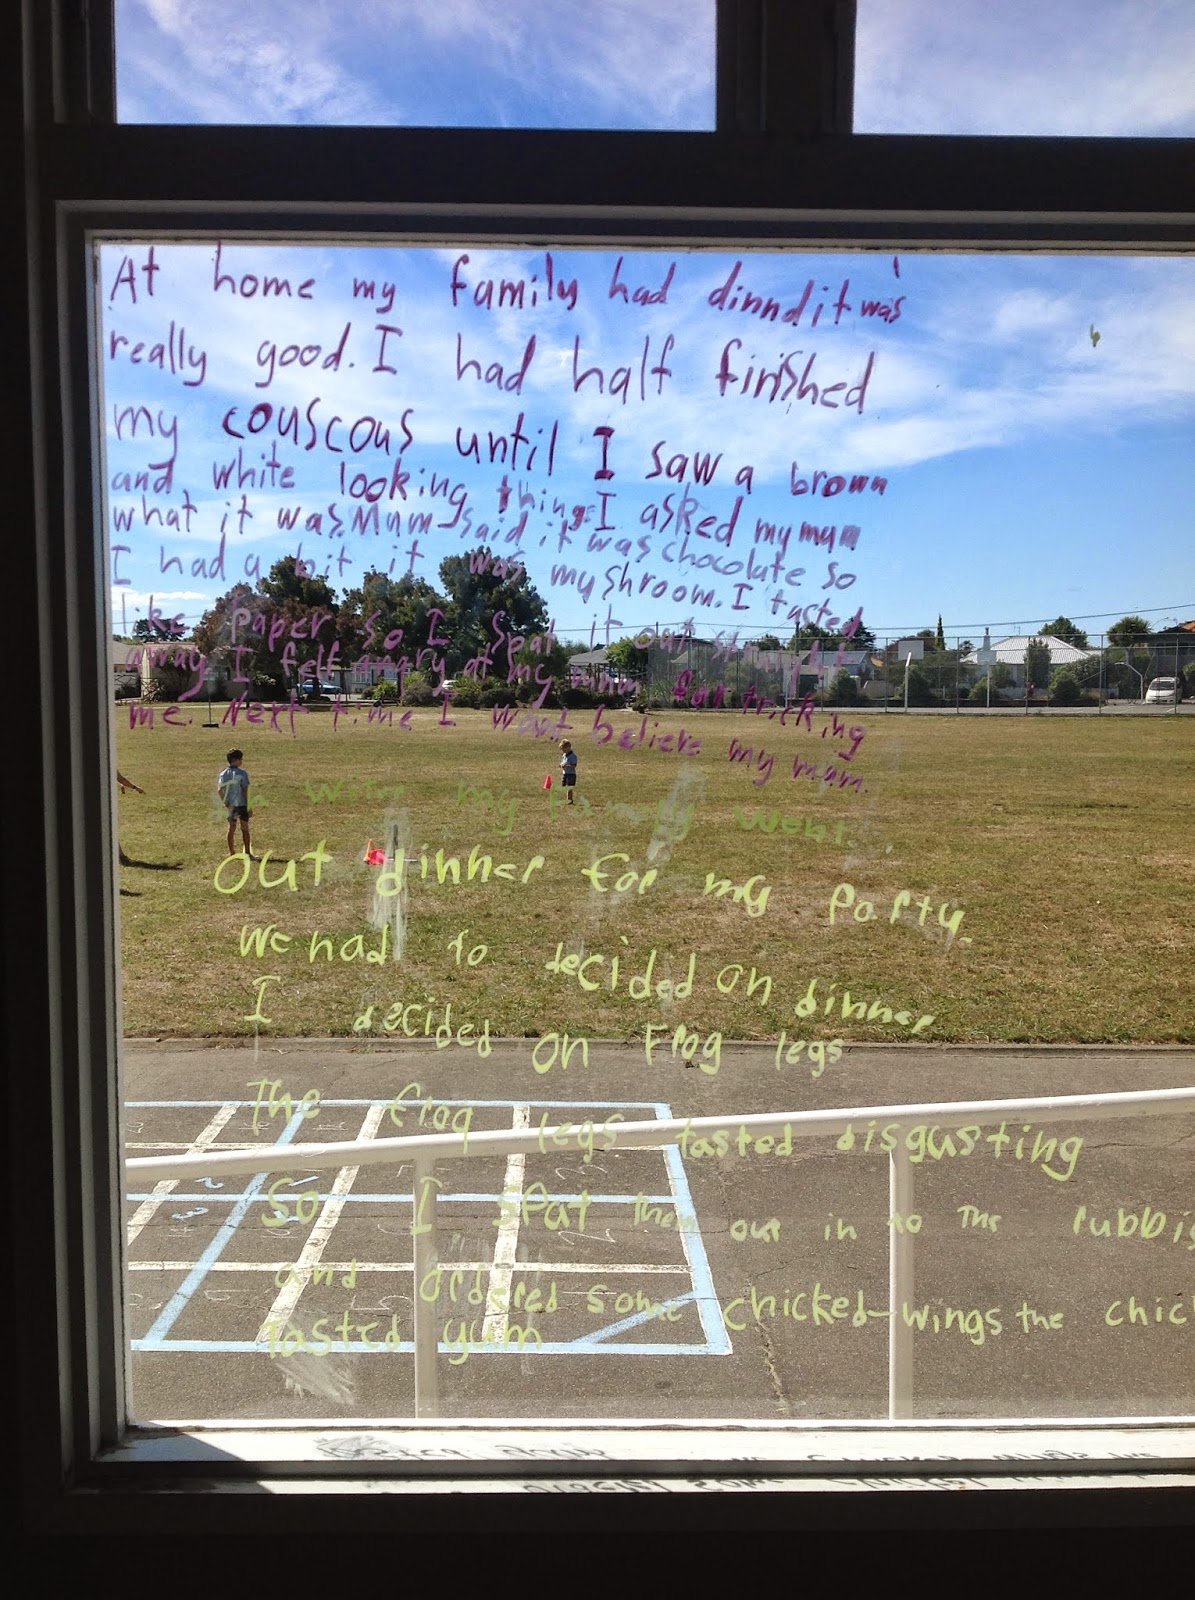 At home my family had dinnd it was
really good. I had half finished
my couscous until I saw a brown
and white looking thing. I asked my mum
what it was. Mum said it was chocolate so
I had a bit it was myshroom. I tasted
like paper so I spat it out straight
away I felt angry at my mum for tricking
me. Next time I wont believe my mum.
my family went
out dinner for my party.
We had to decided on dinner
I decided on Frog legs
The frog legs tasted disgusting
So I spat them out in to the rubbis
and ordered some chicked-wings the chic
tasted yum